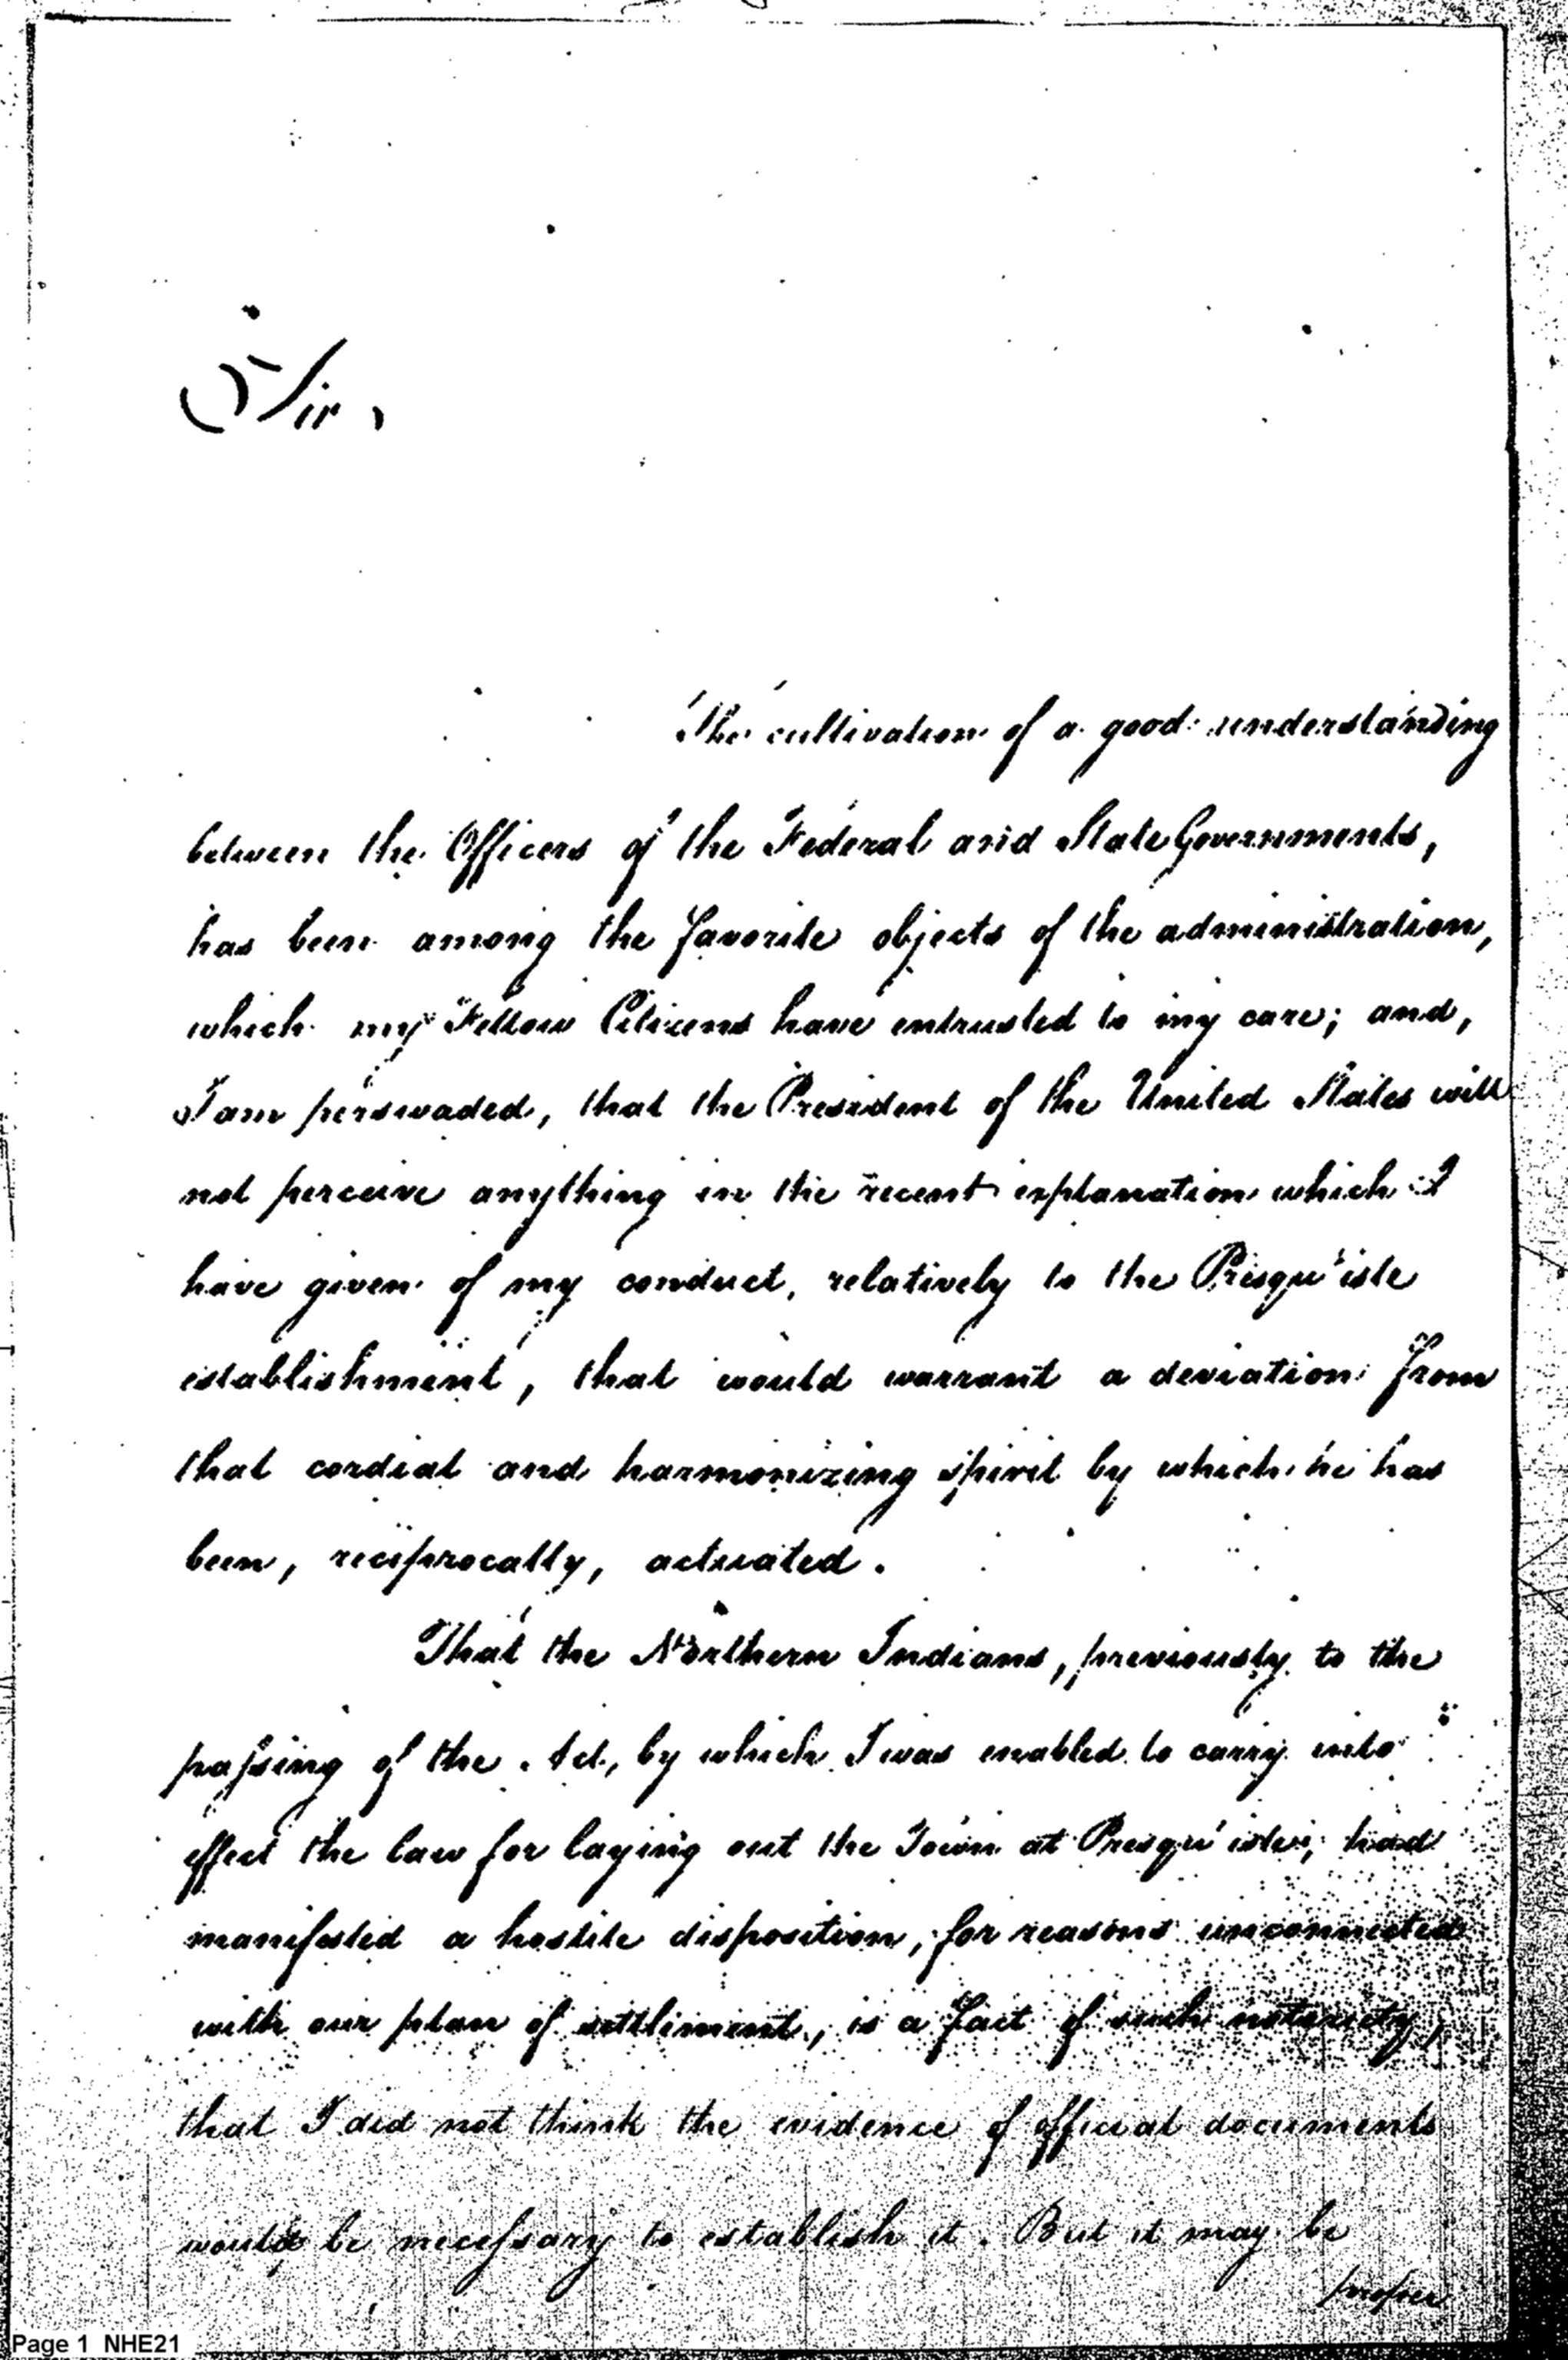 Sir,
The cultivation of a good understanding
between the Officers of the Federal and State Governments,
has been among the favorite objects of the administration,
which my Fellow Citizens have entrusted to my care; and,
I am perswaded, that the President of the United States will
not perceive anything in the recent explanation which I
have given of my conduct, relatively to the Presqu'isle
establishment, that would warrant a deviation from
that cordial and harmonizing spirit by which he has
been, reciprocally, actuated.
That the Northern Indians, previously to the
passing of the Act, by which I was enabled to carry into
effect the law for laying out the Town at Presqu'isle, had
manifested a hostile disposition, for reasons unconnected
with our plan of settlement, is a fact of such notoriety,
that I did not think the evidence of official documents
would be necessary to establish it. But it may be
proper
Page 1 NHE21